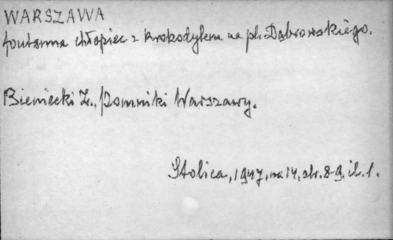 WARSZAWA
fontanna chłopiec z krokodylem na pl. Dąbrowskiego.
Bieniecki Z., Pomniki Warszawy.
Stolica, 1947, nr 14, str. 8-9, il. 1.